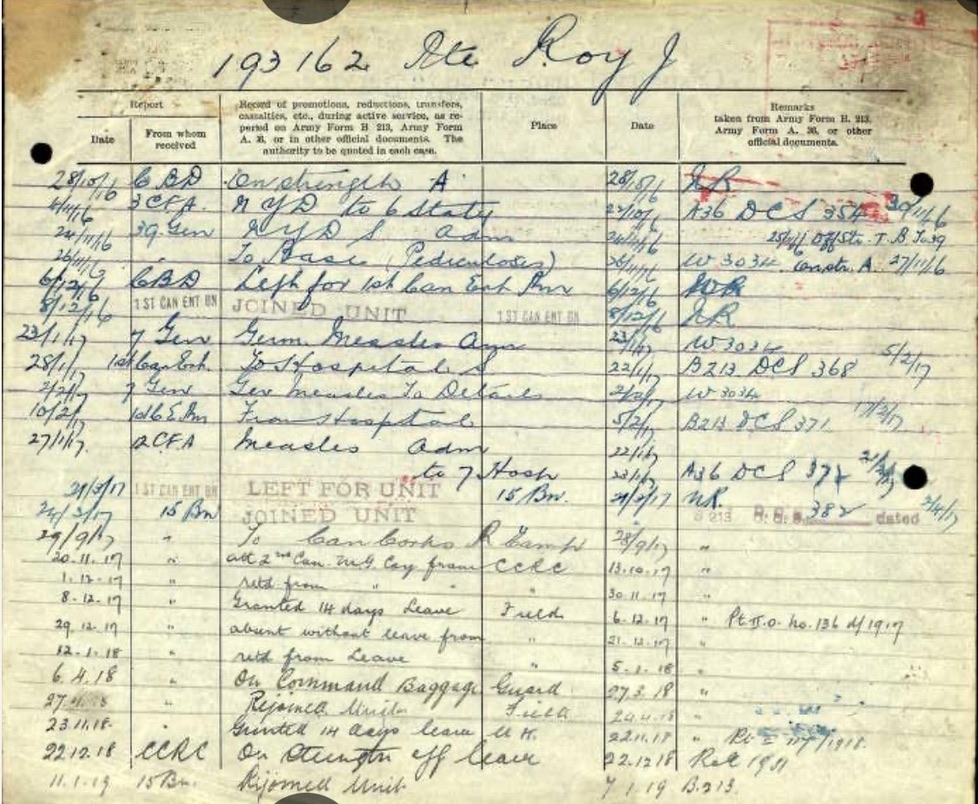 193162 Pte Roy J
Report
Date
From whom received
Record of promotions, reductions, transfers, casualties, etc., during active service, as reported on Army Form B 213, Army Form A. 36, or in other official documents. The authority to be quoted in each case.
Place
Date
Remarks
taken from Army Form B. 213, Army Form A. 36, or other official documents.
28/10/16 CBD On strength A 28/10/16 NR
3 CFA NYD to 6 Staty 27/10/16 A36 DCS 354 30/11/16
24/11/16 39 Gen NYD S adm 24/11/16
26/11/16 To Base (Pediculosis) 26/11/16 W 3034 On str. A. 27/11/16
6/12/16 CBD Left for 1st Can Ent Bn 6/12/16 NR
8/12/16 1ST CAN ENT BN JOINED UNIT 1ST CAN ENT BN 8/12/16 NR
23/1/17 7 Gen Germ. Measles Adm 23/1/17 W 3034
28/1/17 1st Can Ent. To Hospital S 22/1/17 B213 DCS 368 5/2/17
2/2/17 7 Gen Ger measles To Details 2/2/17 W 3034
10/2/17 1st C E Bn From Hospital 5/2/17 B213 DCS 371 17/2/17
27/1/17 2 CFA Measles adm 22/1/17
to 7 Hosp 23/1/17 A36 DCS
21/3/17 1ST CAN ENT BN LEFT FOR UNIT 15 Bn. 21/3/17 NR.
15 Bn JOINED UNIT B 213 D.C.S. 382 dated 2/4/17
29/9/17 " To Can Corks R Camp 28/9/17 "
20.11.17 " att 2nd Can. M G Coy from CCRC 13.10.17 "
1.12.17 " retd from " " " 30.11.17 "
8.12.17 " Granted 14 days Leave Field 6.12.17 " Pt II O. no. 136 d/1917
29.12.17 " absent without leave from " 21.12.17 "
12.1.18 " retd from Leave " 5.1.18 "
6.4.18 " On Command Baggage Guard 27.3.18 "
" Rejoined Unit Field "
23.11.18 " Granted 14 days leave U.K. 22.11.18 "
22.12.18 CCRC On Strength off leave 22.12.18
11.1.19 15 Bn. Rejoined Unit 7.1.19 B.213.